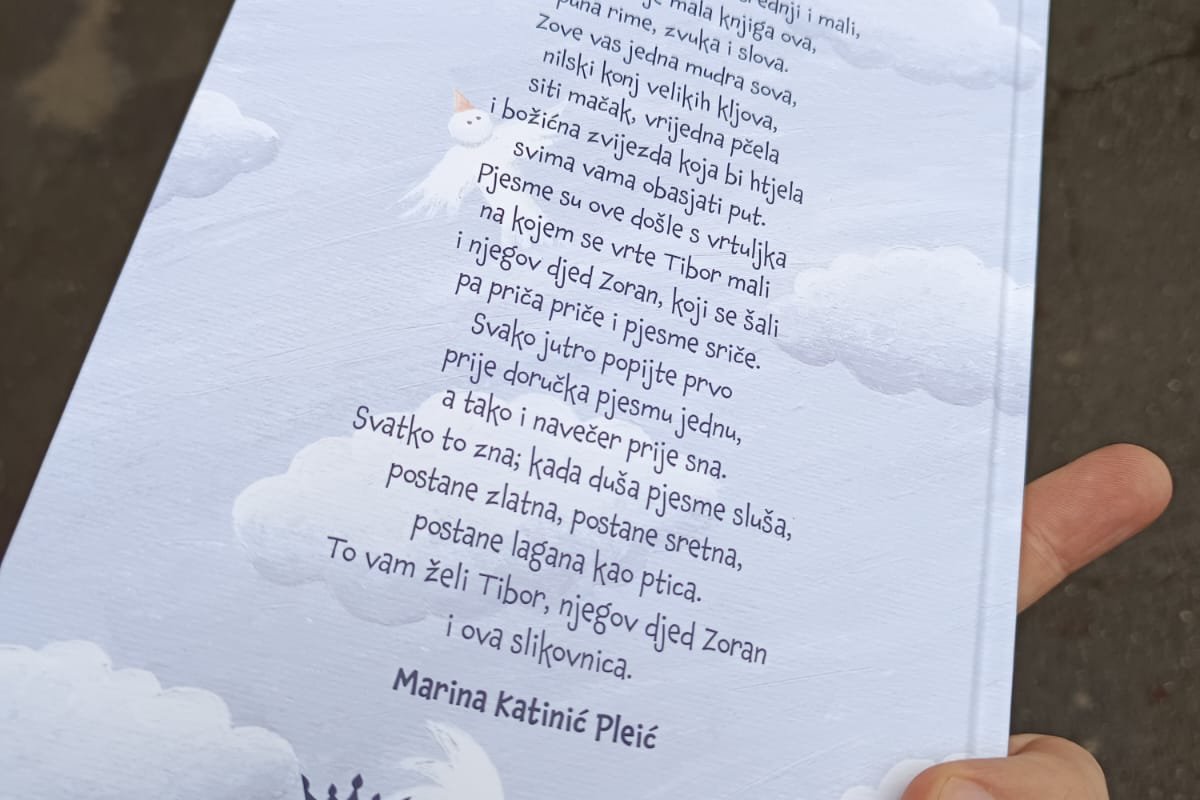 srednji i mali,
mala knjiga ova,
puna rime, zvuka i slova.
Zove vas jedna mudra sova,
nilski konj velikih kljova,
siti mačak, vrijedna pčela
i božićna zvijezda koja bi htjela
svima vama obasjati put.
Pjesme su ove došle s vrtuljka
na kojem se vrte Tibor mali
i njegov djed Zoran, koji se šali
pa priča priče i pjesme sriče.
Svako jutro popijte prvo
prije doručka pjesmu jednu,
a tako i navečer prije sna.
Svatko to zna; kada duša pjesme sluša,
postane zlatna, postane sretna,
postane lagana kao ptica.
To vam želi Tibor, njegov djed Zoran
i ova slikovnica.
Marina Katinić Pleić